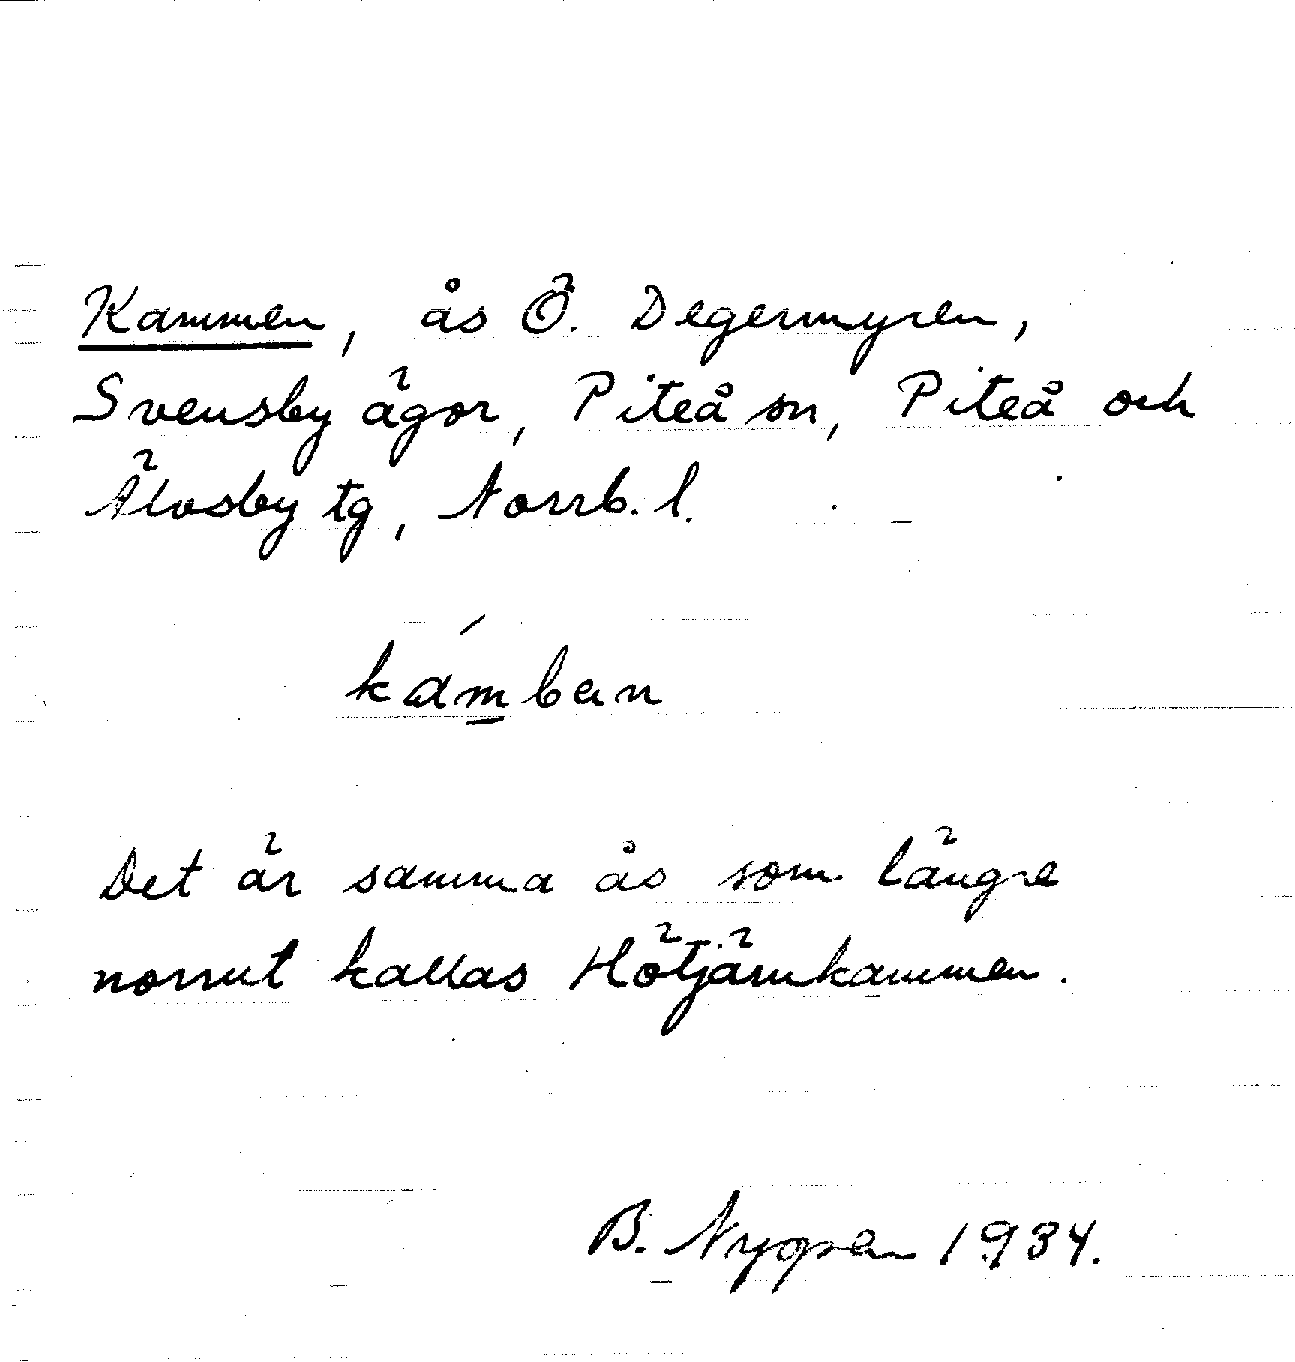 Kammen, ås Ö. Degermyren,
Svensby ägor, Piteå sn, Piteå och
Älvsby tg, Norrb. l.
kámban
Det är samma ås som längre
norrut kallas Hötjärnkammen.
B. Nygren 1934.